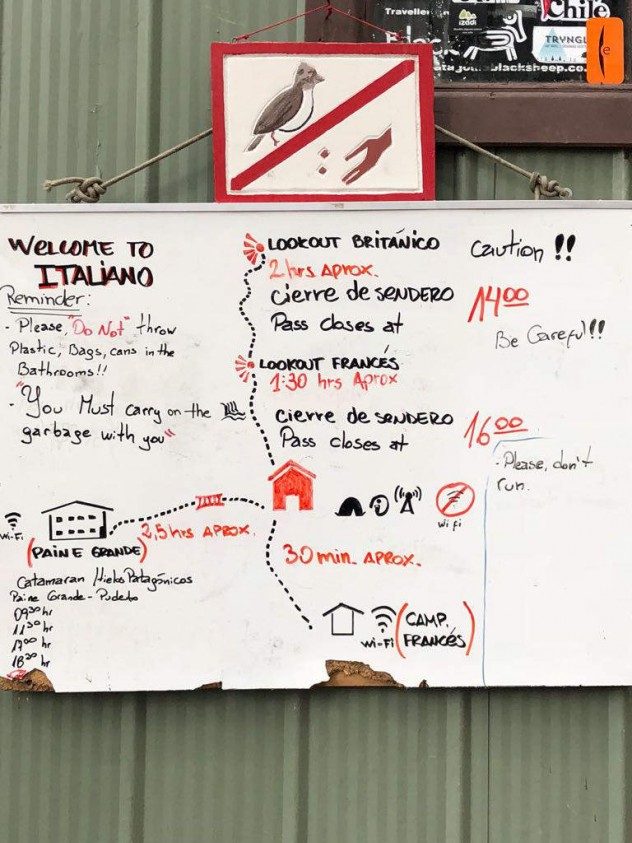 Traveller
izadi
Chile
TRYNGL
blacksheep.co
WELCOME TO
ITALIANO
Reminder:
- Please, "Do Not" throw
Plastic, Bags, cans in the
Bathrooms!!
- "You Must carry on the
garbage with you"
LOOKOUT BRITÁNICO
2 hrs APROX.
cierre de SENDERO
Pass closes at
LOOKOUT FRANCÉS
1:30 hrs Aprox
cierre de SENDERO
Pass closes at
Caution !!
14⁰⁰
Be Careful!!
16⁰⁰
- Please, don't
run.
wifi
Wi-Fi
2,5 hrs APROX.
(PAINE GRANDE)
30 min. APROX.
Catamaran Hielos Patagónicos
Paine Grande - Pudeto
09³⁰ hr
11³⁰ hr
17⁰⁰ hr
18³⁰ hr
Wi-Fi
(CAMP.
FRANCÉS)